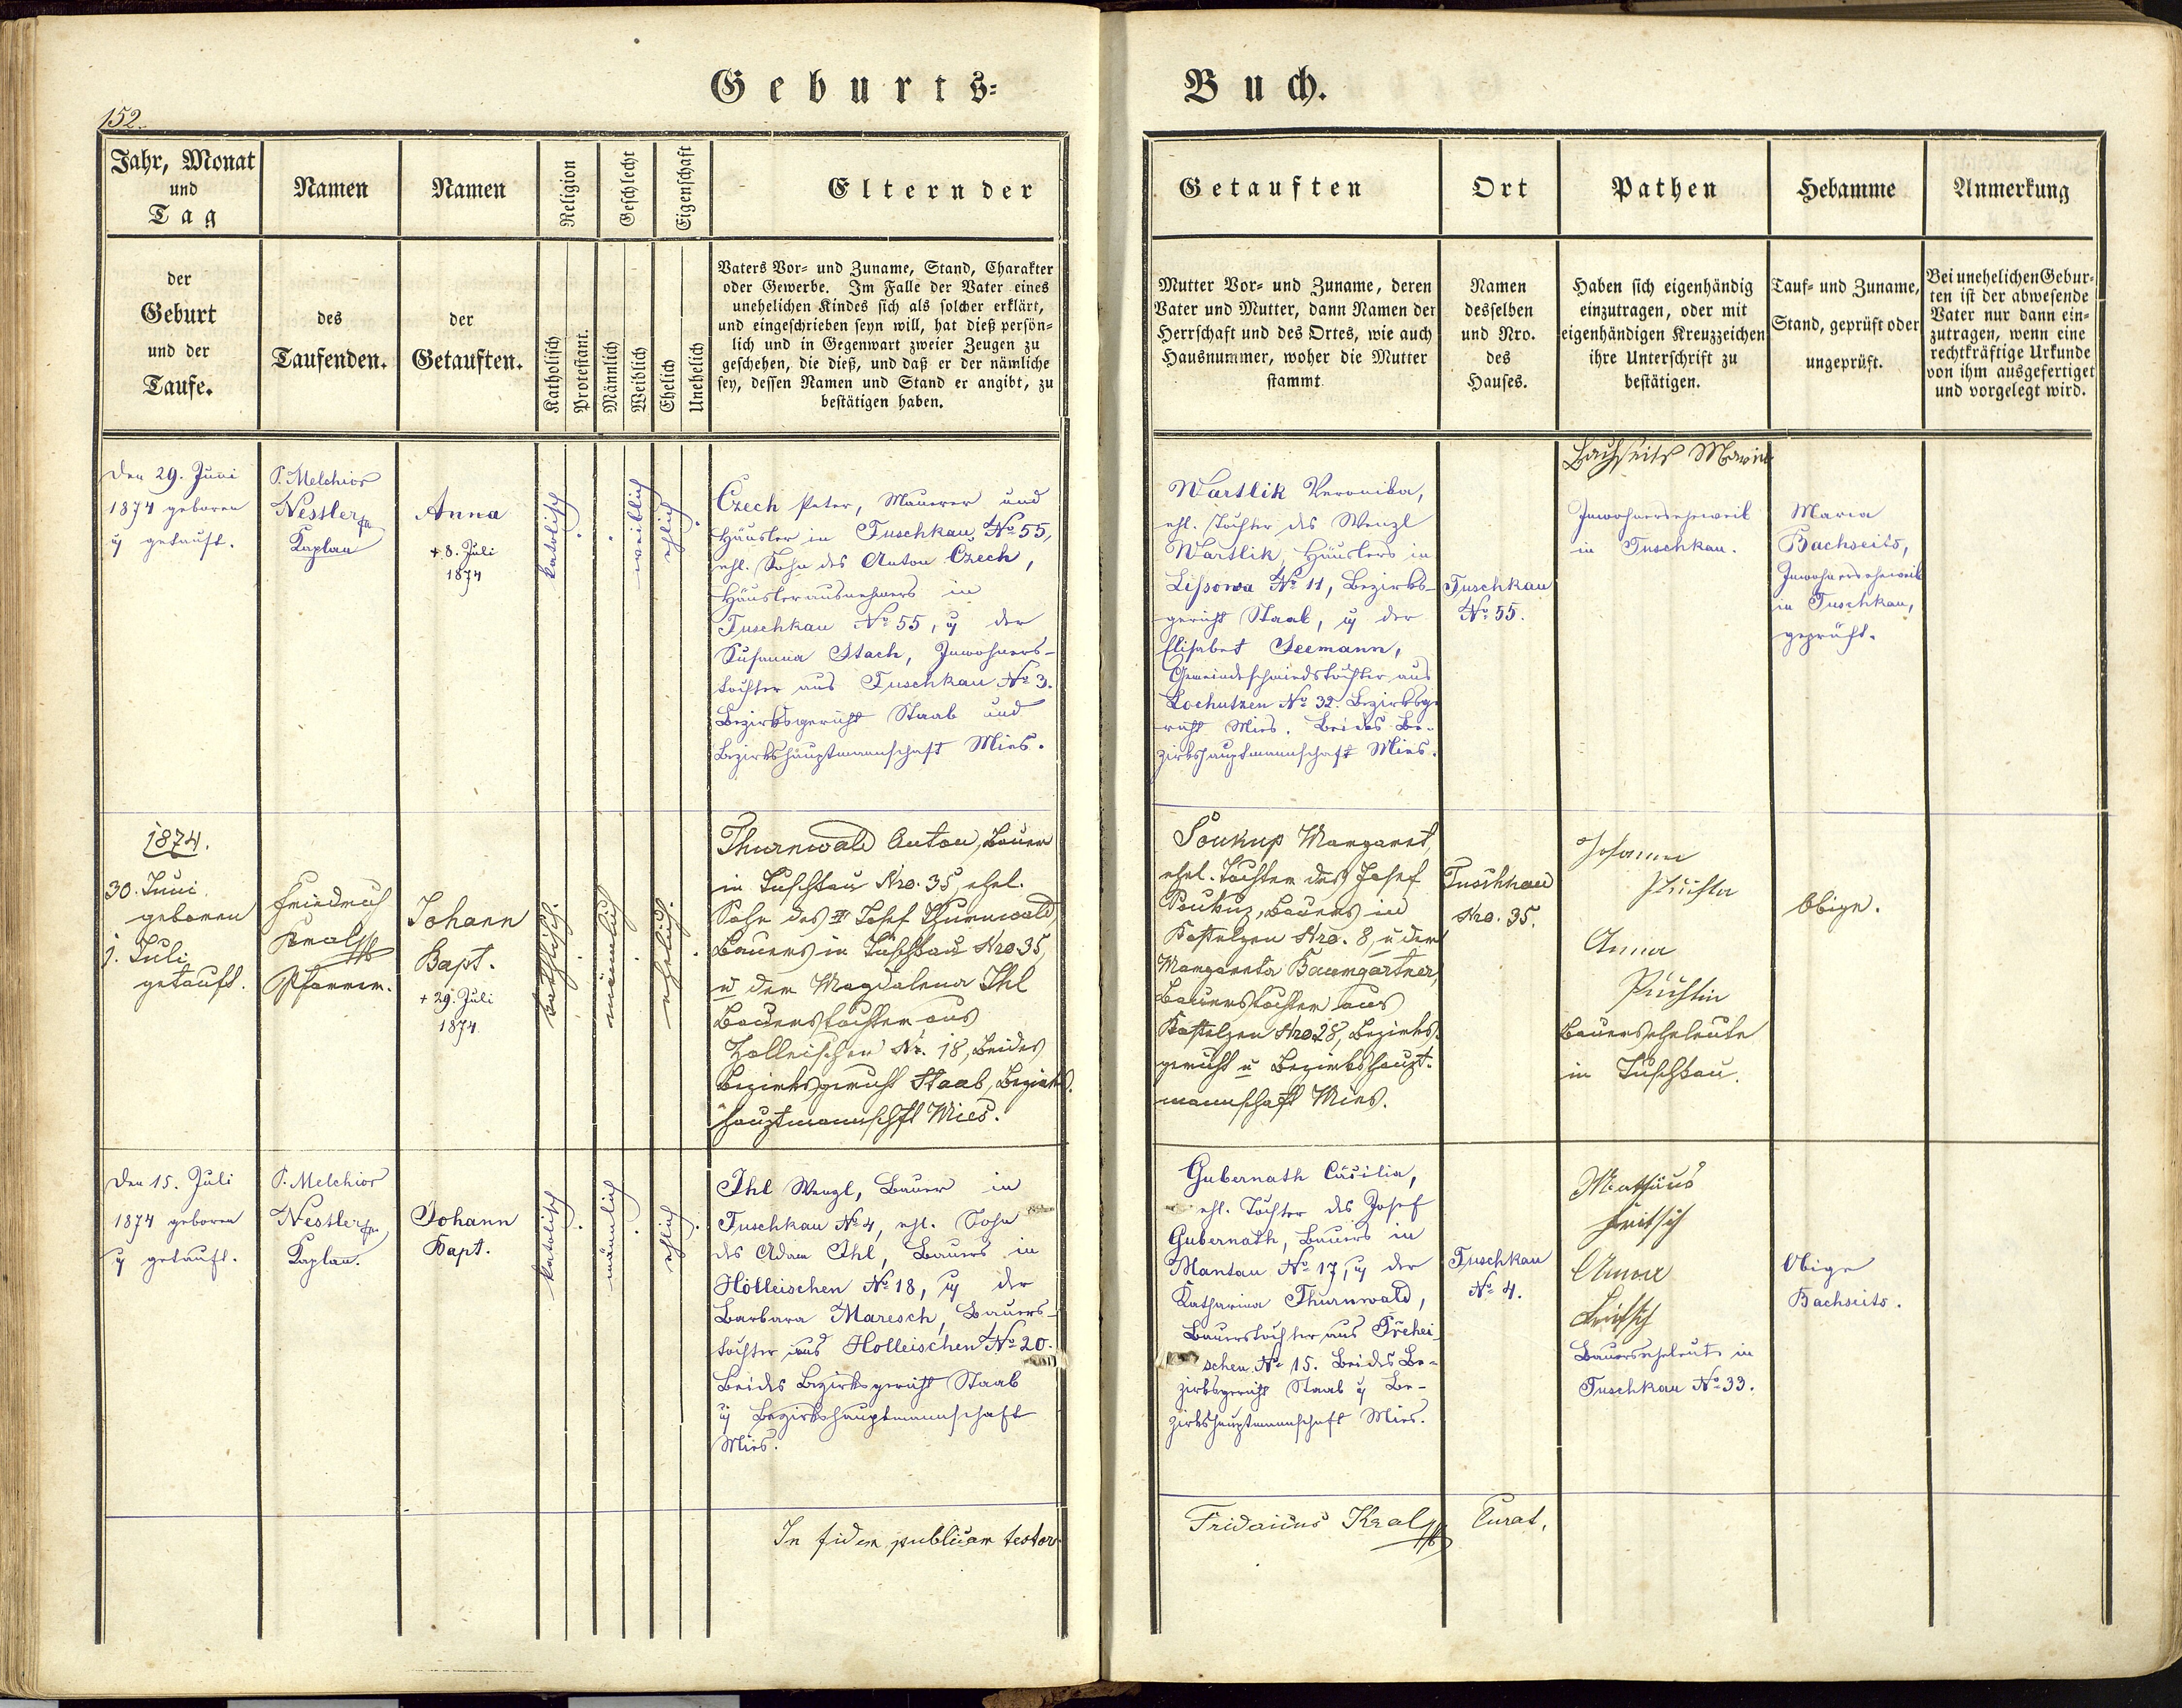 Geburts=
Buch.
152.
Jahr, Monat
und
Tag
der
Geburt
und der
Taufe.
Namen
des
Taufenden.
Namen
der
Getauften.
Religion
Katholisch
Protestant.
Geschlecht
Männlich
Weiblich
Eigenschaft
Ehelich
Unehelich
Eltern der
Vaters Vor= und Zuname, Stand, Charakter
oder Gewerbe. Im Falle der Vater eines
unehelichen Kindes sich als solcher erklärt,
und eingeschrieben seyn will, hat dieß persön=
lich und in Gegenwart zweier Zeugen zu
geschehen, die dieß, und daß er der nämliche
sey, dessen Namen und Stand er angibt, zu
bestätigen haben.
Getauften
Mutter Vor= und Zuname, deren
Vater und Mutter, dann Namen der
Herrschaft und des Ortes, wie auch
Hausnummer, woher die Mutter
stammt.
Ort
Namen
desselben
und Nro.
des
Hauses.
Pathen
Haben sich eigenhändig
einzutragen, oder mit
eigenhändigen Kreuzzeichen
ihre Unterschrift zu
bestätigen.
Hebamme
Tauf= und Zuname,
Stand, geprüft oder
ungeprüft.
Anmerkung
Bei unehelichen Gebur=
ten ist der abwesende
Vater nur dann ein=
zutragen, wenn eine
rechtkräftige Urkunde
von ihm ausgefertiget
und vorgelegt wird.
Den 29. Juni
1874 geboren
u getauft.
P. Melchior
Nessler
Kaplan
Anna
+ 8. Juli
1874
katolisch
weiblich
ehlich
Czech Peter, Maurer und
Häusler in Tuschkau, No 55,
ehl. Sohn des Anton Czech,
Häuslerausnehmers in
Tuschkau No 55, u der
Susanna Stach, Inwohners-
tochter aus Tuschkau No 3.
Bezirksgericht Staab und
Bezirkshauptmannschaft Mies.
Wartlik Veronika,
ehl. Tochter des Wenzl
Wartlik, Häuslers in
Lissowa No 11, Bezirks-
gericht Staab, u der
Elisabet Seemann,
Gemeindeschmiedstochter aus
Lochutzen No 32. Bezirksge-
richt Mies. Beides Be-
zirkshauptmannschaft Mies.
Tuschkau
No 55.
Bachseits Maria
Inwohnerseheweib
in Tuschkau.
Maria
Bachseits,
Inwohnerseheweib
in Tuschkau,
geprüft.
1874.
30. Juni
geboren
1. Juli
getauft.
Friedrich
Kral
Pfarrer.
Johann
Bapt.
+ 29. Juli
1874.
katholisch.
männlich
ehelich.
Thurnwald Anton, Bauer
in Tuschkau Nro. 35, ehel.
Sohn des Josef Thurnwald,
Bauers in Tuschkau Nro 35,
u der Magdalena Ihl
Bauerstochter aus
Holleischen Nr. 18, beides
Bezirksgericht Staab, Bezirks-
hauptmannschft Mies.
Soukup Margaret,
ehel. Tochter des Josef
Soukup, Bauers in
Kostelzen Nro. 8, u der
Margareta Baumgartner,
Bauerstochter aus
Kostelzen Nro 28, Bezirks-
gericht u Bezirkshaupt-
mannschaft Mies.
Tuschkau
Nro. 35.
Johann
Püchla
Anna
Püchlin
Bauerseheleute
in Tuschkau.
Obige.
Den 15. Juli
1874 geboren
u getauft.
P. Melchior
Nessler
Kaplan.
Johann
Bapt.
katolisch
männlich
ehlich
Ihl Wenzl, Bauer in
Tuschkau No 4, ehl. Sohn
des Adam Ihl, Bauers in
Holleischen No 18, u der
Barbara Maresch, Bauers-
tochter aus Holleischen No 20.
Beides Bezirksgericht Staab
u Bezirkshauptmannschaft
Mies.
Gubernath Cäcilia,
ehl. Tochter des Josef
Gubernath, Bauers in
Mantau No 17, u der
Katharina Thurnwald,
Bauerstochter aus Třehei-
schen No 15. Beides Be-
zirksgericht Staab u Be-
zirkshauptmannschaft Mies.
Tuschkau
No 4.
Mathäus
Fritsch
Anna
Fritsch
Bauerseheleute in
Tuschkau No 33.
Obige
Bachseits.
In fidem publicam testor
Fridericus Kral
Curat.